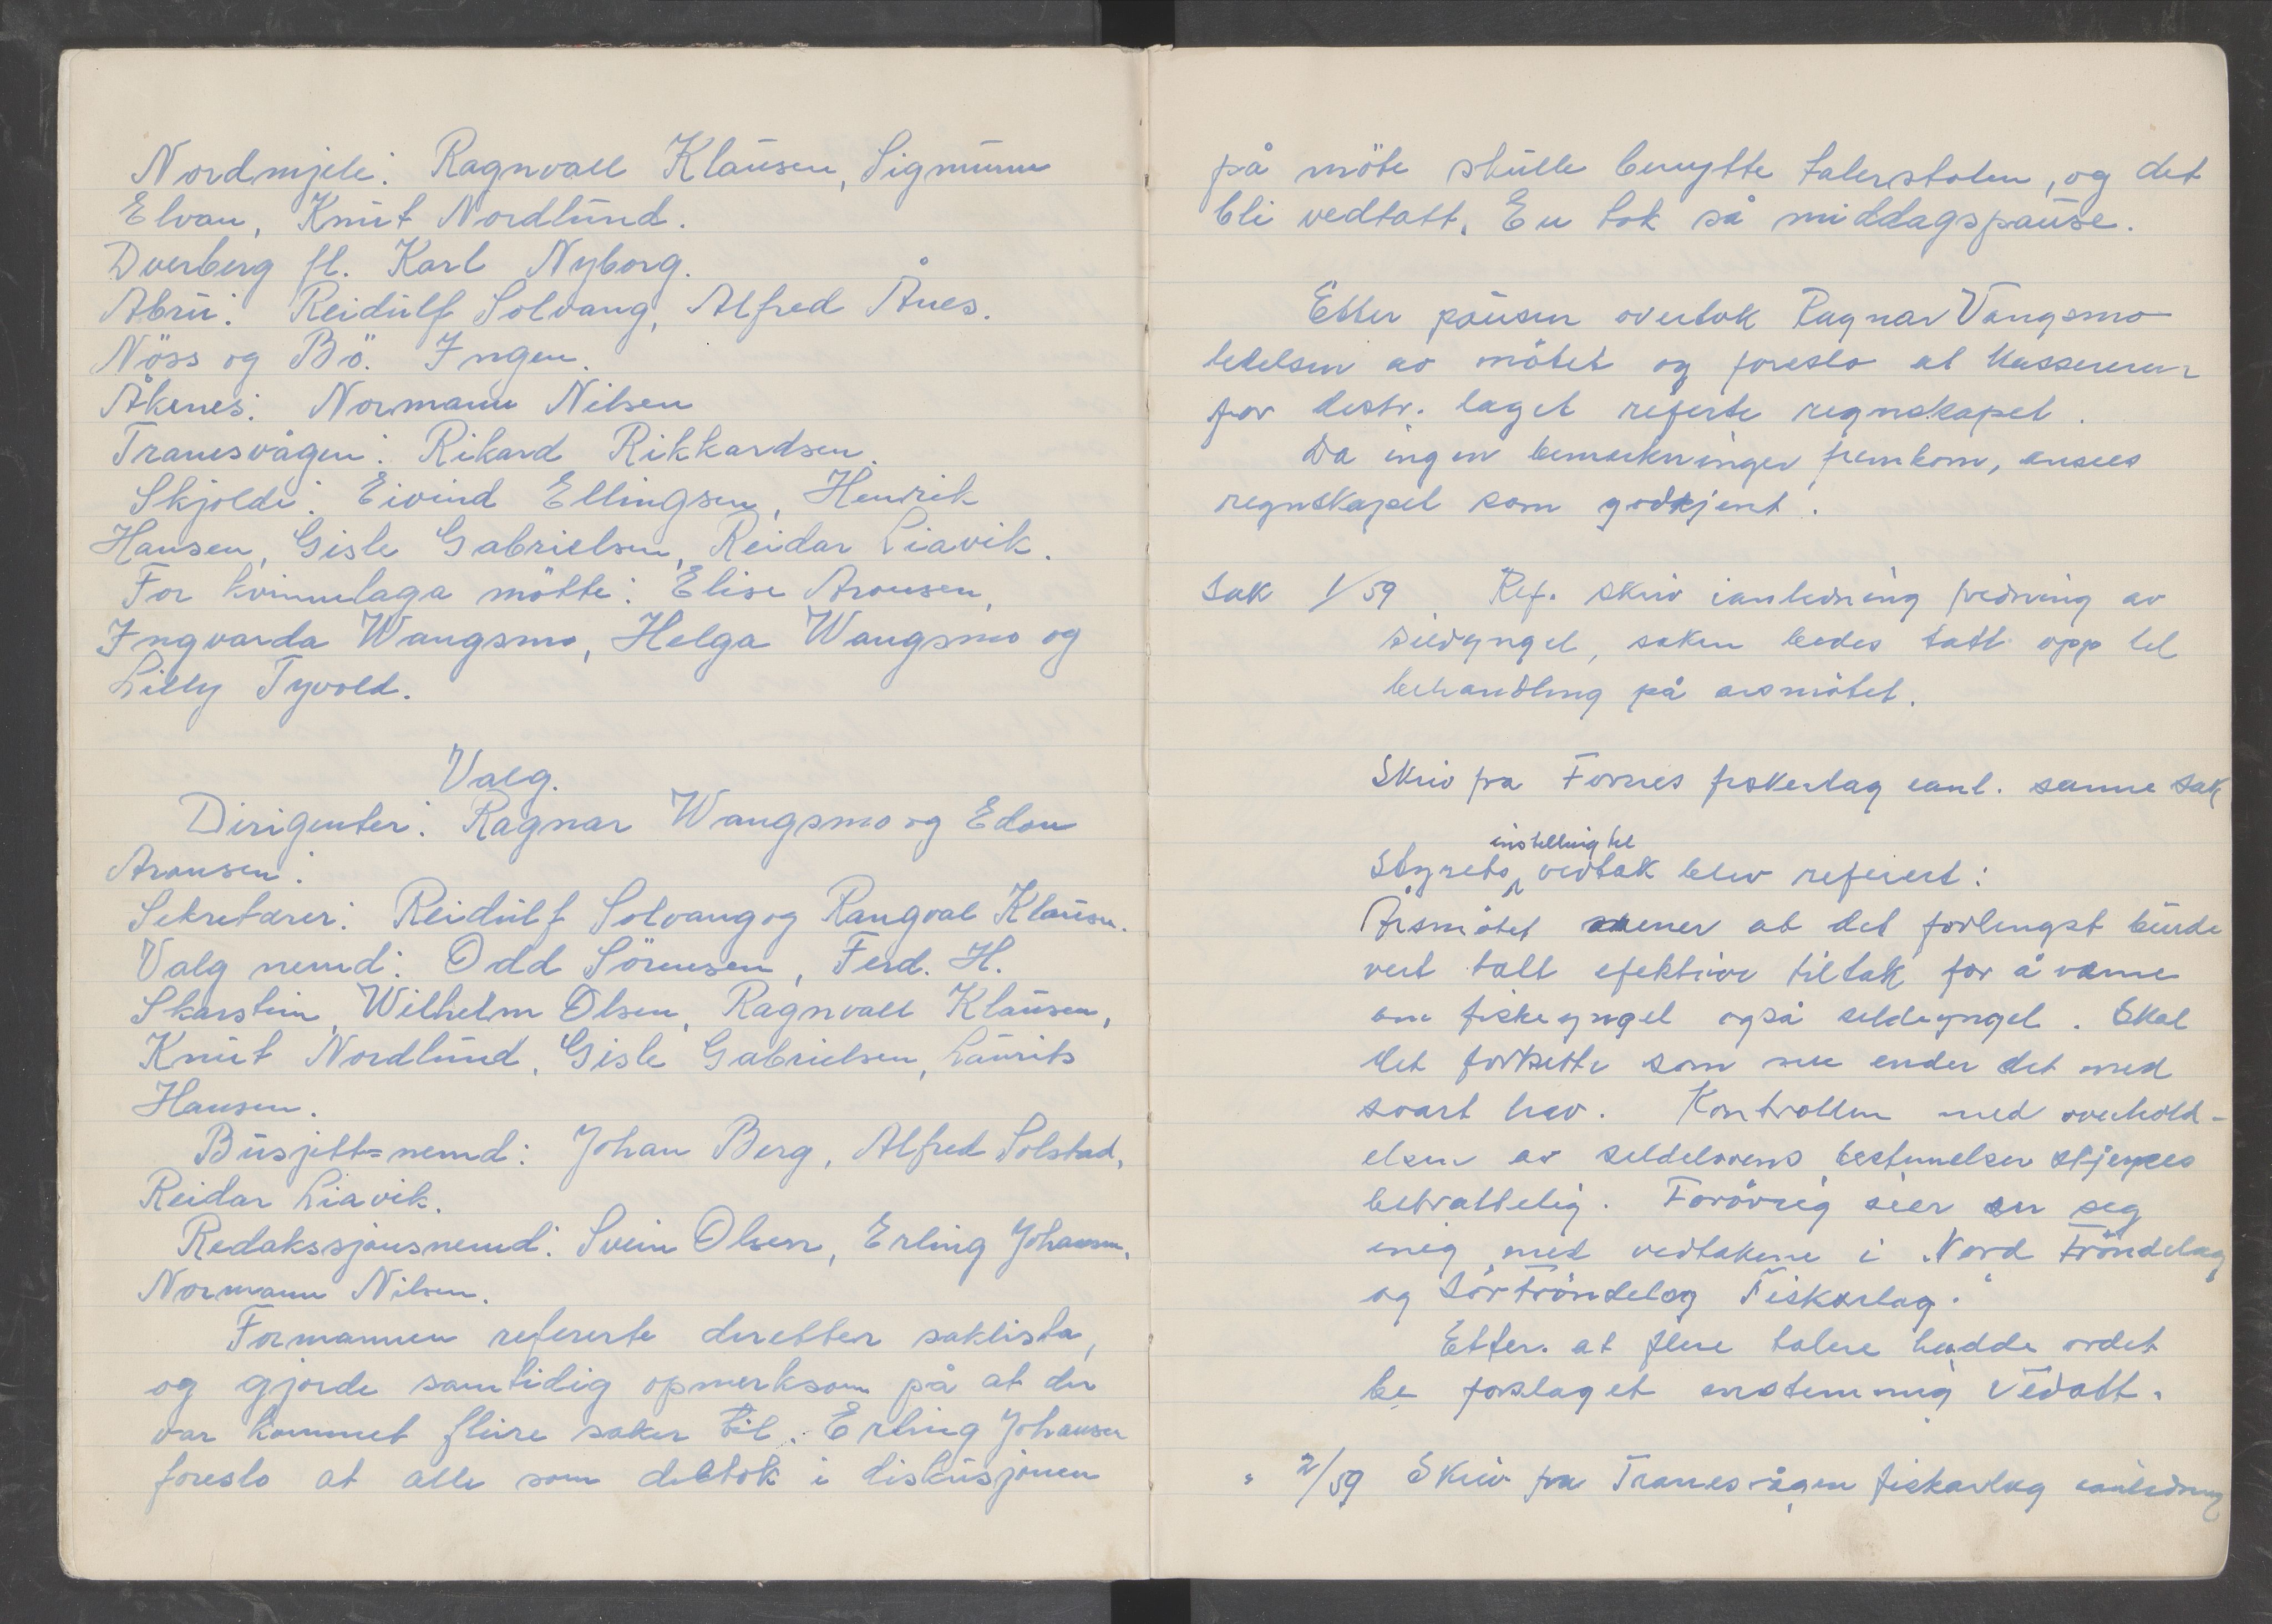 Nordmjele: Ragnvall Klausen, Sigmunn
Elvan, Knut Nordlund.
Dverberg fl. Karl Nyborg.
Åbru: Reidulf Solvang, Alfred Ånes.
Nöss og Bö. Ingen.
Åknes: Normann Nilsen
Tranesvågen: Rikard Rikkardsen.
Skjoldi: Eivind Ellingsen, Henrik
Hansen, Gisle Gabrielsen, Reidar Liavik.
For kvinnelaga mötte: Elise Aronsen,
Ingvarda Wangsmo, Helga Wangsmo og
Lilly Tyvold.
Valg.
Dirigenter: Ragnar Wangsmo og Edon
Aronsen:
Sekretærer: Reidulf Solvang og Rangval Klausen.
Valg nemd: Odd Sörensen, Ferd. H.
Skarstein, Wilhelm Olsen, Ragnvall Klausen,
Knut Nordlund, Gisle Gabrielsen, Laurits
Hansen.
Busjett=nemd: Johan Berg, Alfred Solstad,
Reidar Liavik.
Redakssjonsnemd: Svein Olsen, Erling Johansen,
Normann Nilsen.
Formannen refererte deretter saklista,
og gjorde samtidig opmerksom på at der
var kommet fleire saker til. Erling Johansen
foreslo at alle som deltok i diskusjonen
på möte skulle benytte talerstolen, og det
bli vedtatt. En tok så middagspause.
Etter pausen overtok Ragnar Vangsmo
ledelsen av mötet og foreslo at kassereren
for destr. laget referte regnskapet.
Da ingen bemerkninger fremkom, ansees
regnskapet som godkjent.
Sak 1/59 Ref. skriv ianledning fredning av
sildyngel, saken bedes tatt opp til
behandling på årsmötet.
Skriv fra Fornes fiskerlag ianl. samme sak
instelling til
Styrets vedtak blev referert:
Årsmötet mener at det forlengst burde
vert tatt efektive tiltak for å verne
om fiskeyngel også sildeyngel. Skal
det fortsette som nu ender det med
svart hav. Kontrollen med overhold-
elsen av sildelovens bestemelser
betraktelig. Forövrig sier en seg
enig med vedtakene i Nord Tröndelag
og Sör Tröndelag Fiskarlag."
Etter at flere talere hadde ordet
ble forslaget enstemmig vedatt.
" 2/59 Skriv fra Tranesvågen fiskarlag ianledning